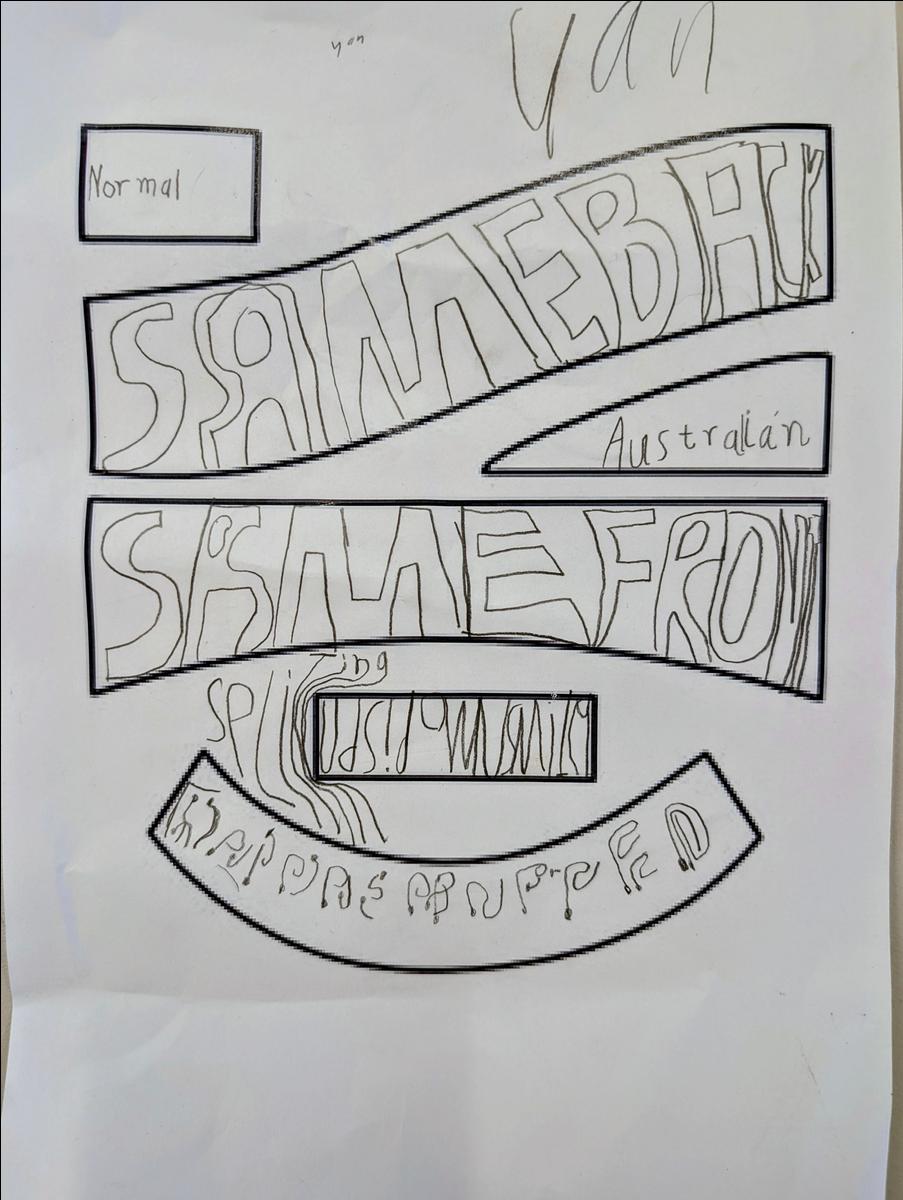 yan
yan
Normal
SAMEBACK
Australian
SAME FRONT
spliTing